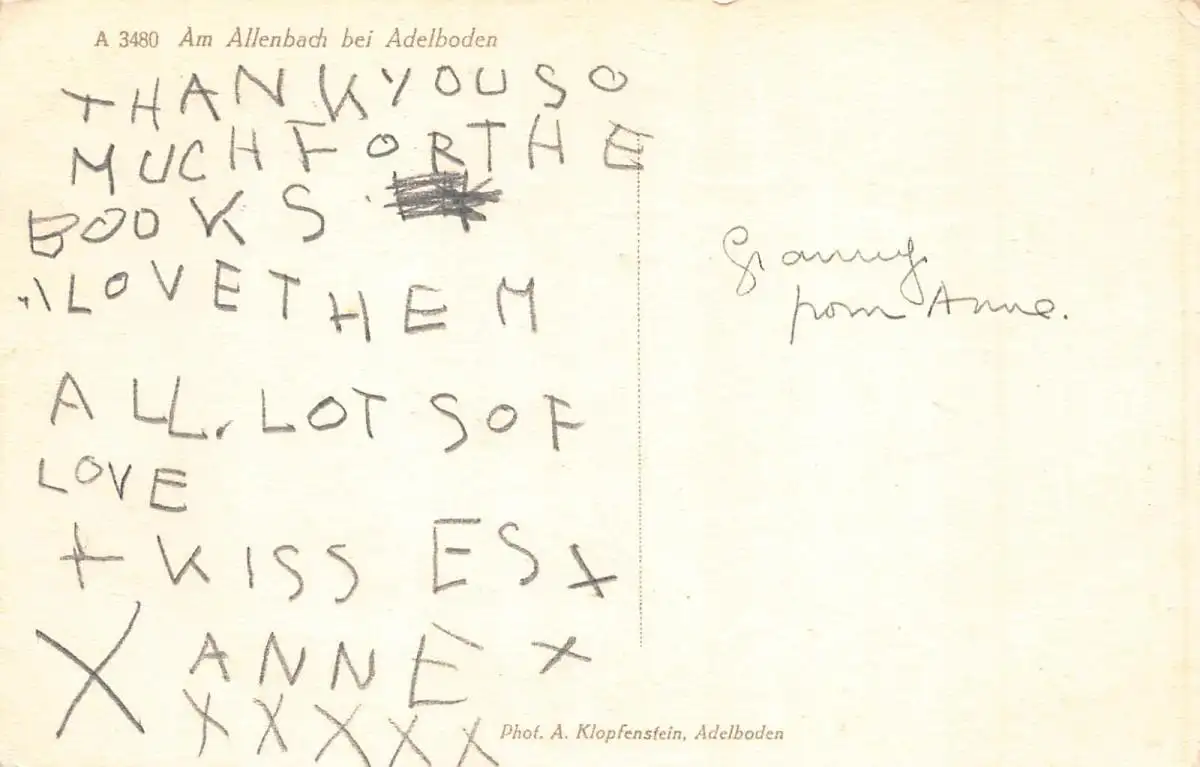 A 3480 Am Allenbach bei Adelboden
THANK YOU SO
MUCH FOR THE
BOOKS.
I LOVE THEM
ALL. LOTS OF
LOVE
+ KISSES X
X ANNE X
X X X X X
Granny
from Anne.
Phot. A. Klopfenstein, Adelboden